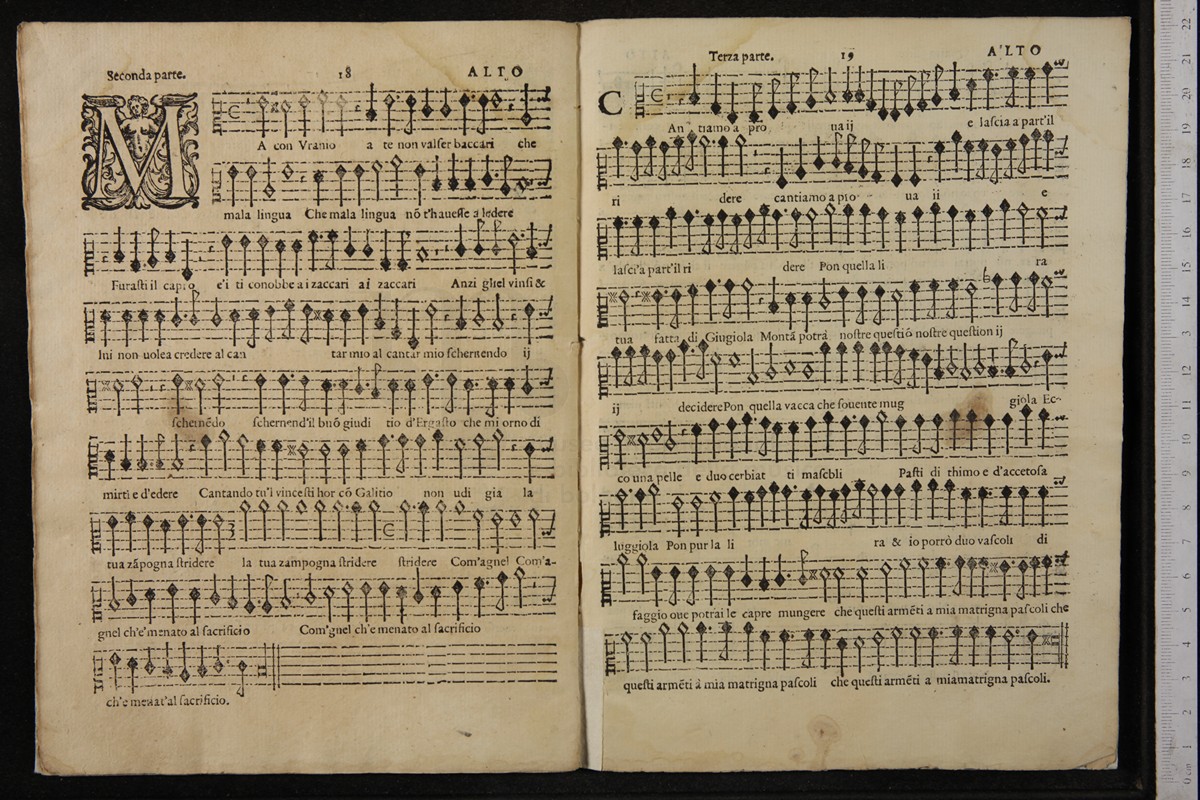 Seconda parte. 18 ALTO
M
A con Vranio a te non valser baccari che
mala lingua Che mala lingua nõ t'hauesse a ledere
Furasti il capro e'i ti conobbe ai zaccari ai zaccari Anzi gliel vinsi &
lui non uolea credere al can tar mio al cantar mio schernendo ij
schernẽdo schernend'il buõ giudi tio d'Ergasto che mi orno di
mirti e d'edere Cantando tu'i vincesti hor cõ Galitio non udi gia la
tua zãpogna stridere la tua zampogna stridere stridere Com'agnel Com'a-
gnel ch'e menato al sacrificio Com'gnel ch'e menato al sacrificio
ch'e menat'al sacrificio.
Terza parte. 19 ALTO
C
An tiamo a pro ua ij e lascia a part'il
ri dere cantiamo a pro- ua ii e
lasci'a part'il ri dere Pon quella li ra
tua fatta di Giugiola Montã potrà nostre questiõ nostre question ij
ij decidere Pon quella vacca che souente mug giola Ec-
co una pelle e duo cerbiat ti maschli Pasti di thimo e d'accetosa
luggiola Pon pur la li ra & io porrò duo vascoli di
faggio oue potrai le capre mungere che questi armẽti a mia matrigna pascoli che
questi armẽti à mia matrigna pascoli che questi armẽti a miamatrigna pascoli.
0 cm 1 2 3 4 5 6 7 8 9 10 11 12 13 14 15 16 17 18 19 20 21 22